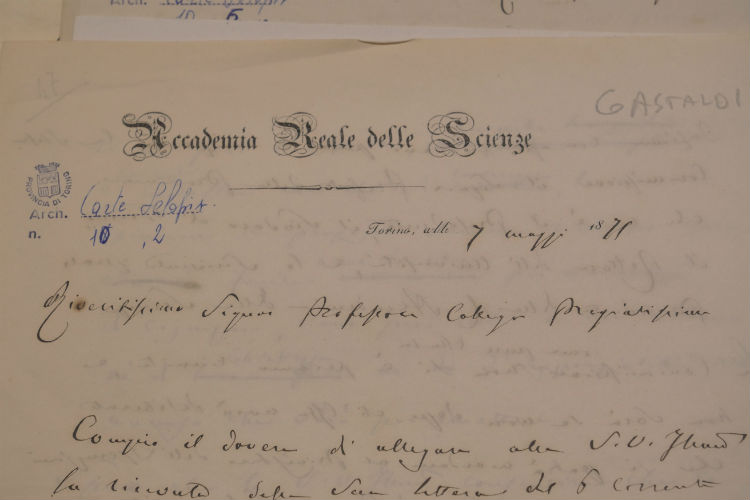 Arch.
10 5
GASTALDI
Accademia Reale delle Scienze
PROVINCIA DI TORINO
Arch. Carte Sclopis.
n. 10, 2
Torino, alli 7 maggio 1875
Riveritissimo Signor Professore Collega Pregiatissimo
Compio il dovere di allegare alla S. V. Illma
la ricevuta della Sua lettera del 6 corrente